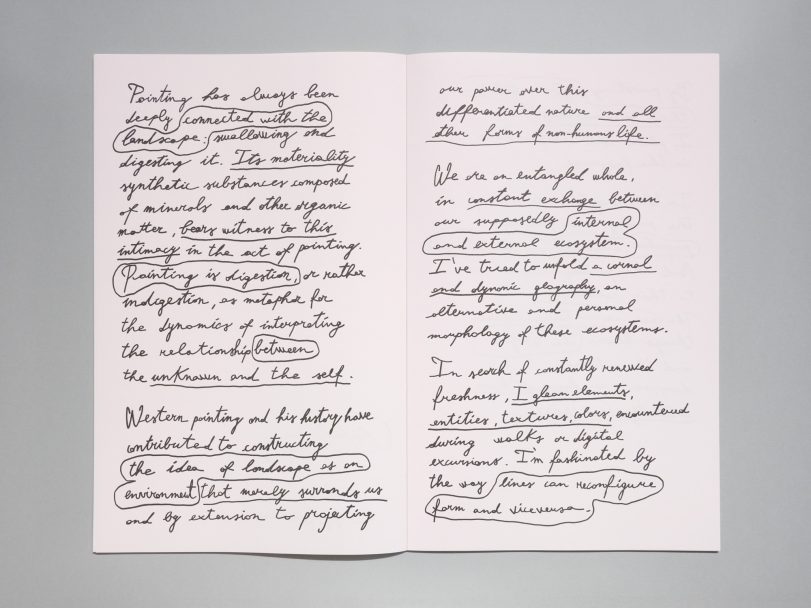 Painting has always been
deeply connected with the
landscape: swallowing and
digesting it. Its materiality
synthetic substances composed
of minerals and other organic
matter, bears witness to this
intimacy in the act of painting.
Painting is digestion, or rather
indigestion, as metaphor for
the dynamics of interpreting
the relationship between
the unknown and the self.
Western painting and his history have
contributed to constructing
the idea of landscape as an
environment that merely surronds us
and by extension to projecting
our power over this
differentiated nature and all
other forms of non-human life.
We are an entangled whole,
in constant exchange between
our supposedly internal
and external ecosystem.
I've tried to unfold a carnal
and dynamic geography, an
alternative and personal
morphology of these ecosystems.
In search of constantly renewed
freshness, I glean elements,
entities, textures, colors, encountered
during walks or digital
excursions. I'm fashinated by
the way lines can reconfigure
form and viceversa.